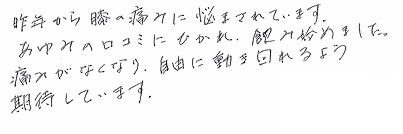 昨年から膝の痛みに悩まされています。
あゆみの口コミにひかれ、飲み始めました。
痛みがなくなり、自由に動き回れるよう
期待しています。